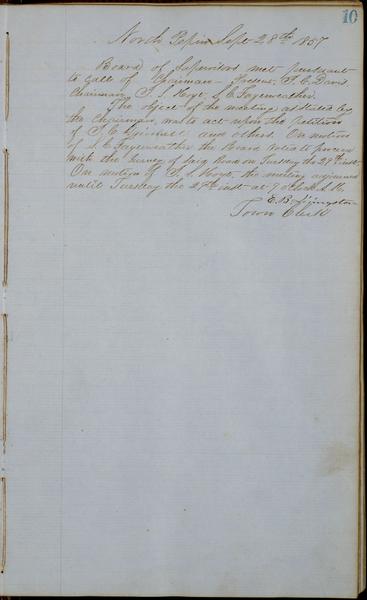 10
North Pepin Sept 28th 1857
Board of Supervisors met pursuant
to Call of Chairman – Present, P. C. Davis
Chairman, T. S. Hoyt, S. C. Fayerweather.
The object of the meeting as stated by
the Chairman, was to act upon the petition
of S. C. and others. On motion
of S. C. Fayerweather the Board voted to proceed
with the Survey of said Road on Tuesday the 29th inst
On motion of T. S. Hoyt, the meeting adjourned
until Tuesday the 29th inst at 9 oclock A.M.
E. B. Livingston
Town Clerk